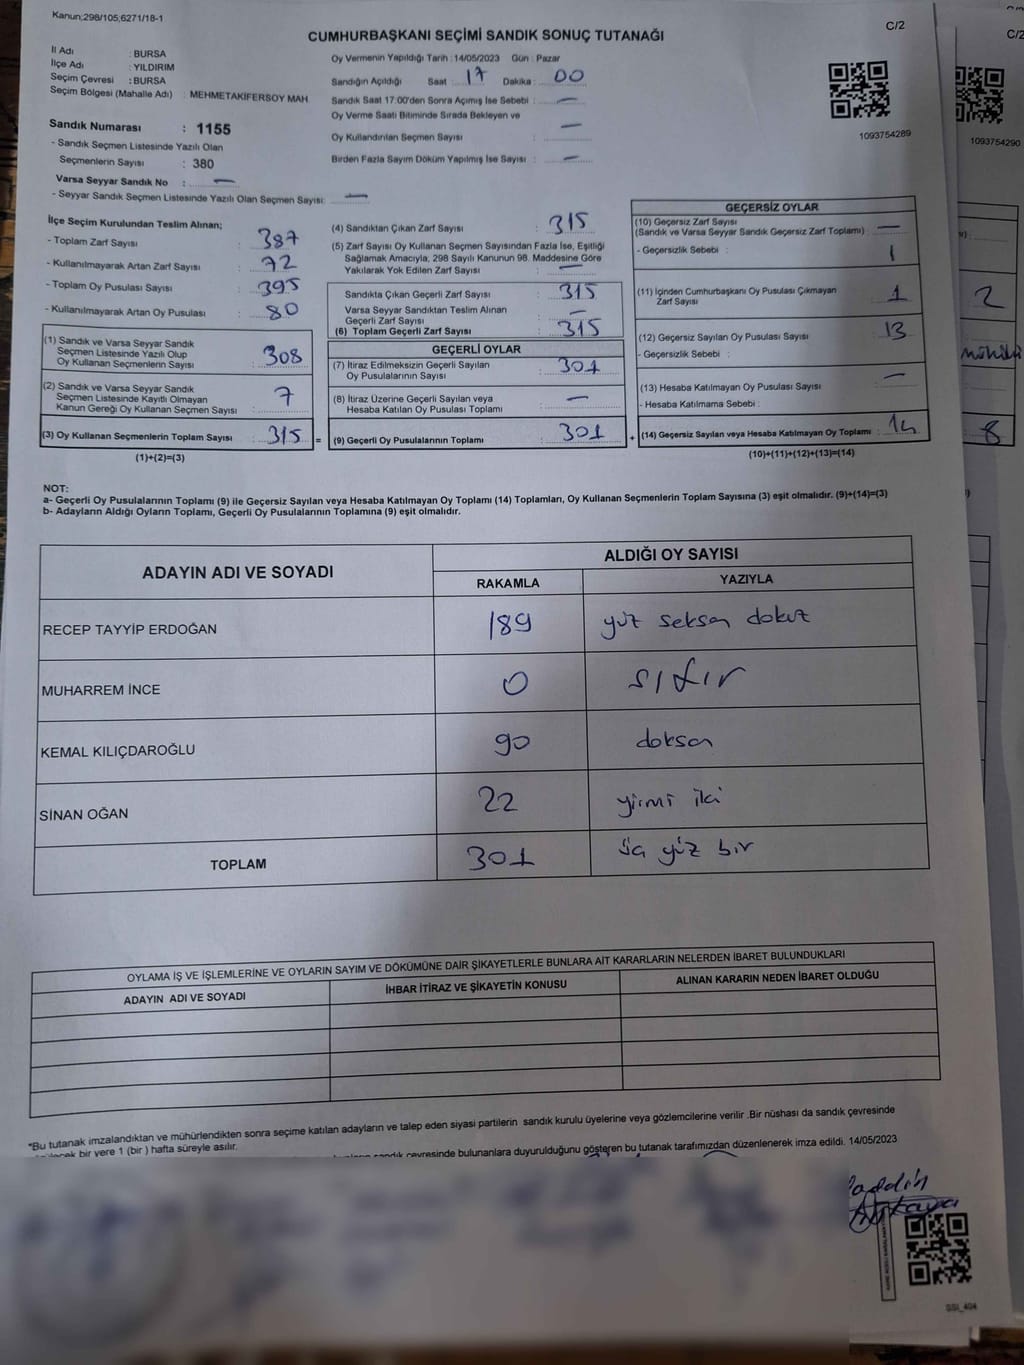 Kanun;298/105;6271/18-1
C/2
CUMHURBAŞKANI SEÇİMİ SANDIK SONUÇ TUTANAĞI
İl Adı : BURSA
İlçe Adı : YILDIRIM
Seçim Çevresi : BURSA
Seçim Bölgesi (Mahalle Adı) : MEHMETAKİFERSOY MAH.
Sandık Numarası : 1155
- Sandık Seçmen Listesinde Yazılı Olan
Seçmenlerin Sayısı : 380
Varsa Seyyar Sandık No : —
- Seyyar Sandık Seçmen Listesinde Yazılı Olan Seçmen Sayısı: —
Oy Vermenin Yapıldığı Tarih :14/05/2023 Gün : Pazar
Sandığın Açıldığı Saat 17 Dakika : 00
Sandık Saat 17:00'den Sonra Açımış İse Sebebi : —
Oy Verme Saati Bitiminde Sırada Bekleyen ve
Oy Kullandırılan Seçmen Sayısı : —
Birden Fazla Sayım Döküm Yapılmış İse Sayısı : —
1093754289
İlçe Seçim Kurulundan Teslim Alınan;
- Toplam Zarf Sayısı : 387
- Kullanılmayarak Artan Zarf Sayısı : 72
- Toplam Oy Pusulası Sayısı : 395
- Kullanılmayarak Artan Oy Pusulası : 80
(1) Sandık ve Varsa Seyyar Sandık
Seçmen Listesinde Yazılı Olup
Oy Kullanan Seçmenlerin Sayısı : 308
(2) Sandık ve Varsa Seyyar Sandık
Seçmen Listesinde Kayıtlı Olmayan
Kanun Gereği Oy Kullanan Seçmen Sayısı : 7
(3) Oy Kullanan Seçmenlerin Toplam Sayısı : 315 =
(1)+(2)=(3)
(4) Sandıktan Çıkan Zarf Sayısı : 315
(5) Zarf Sayısı Oy Kullanan Seçmen Sayısından Fazla İse, Eşitliği
Sağlamak Amacıyla; 298 Sayılı Kanunun 98. Maddesine Göre
Yakılarak Yok Edilen Zarf Sayısı : —
Sandıkta Çıkan Geçerli Zarf Sayısı : 315
Varsa Seyyar Sandıktan Teslim Alınan
Geçerli Zarf Sayısı : —
(6) Toplam Geçerli Zarf Sayısı : 315
GEÇERLİ OYLAR
(7) İtiraz Edilmeksizin Geçerli Sayılan
Oy Pusulalarının Sayısı : 301
(8) İtiraz Üzerine Geçerli Sayılan veya
Hesaba Katılan Oy Pusulası Toplamı : —
(9) Geçerli Oy Pusulalarının Toplamı : 301 +
GEÇERSİZ OYLAR
(10) Geçersiz Zarf Sayısı
(Sandık ve Varsa Seyyar Sandık Geçersiz Zarf Toplamı) : —
- Geçersizlik Sebebi :
(11) İçinden Cumhurbaşkanı Oy Pusulası Çıkmayan
Zarf Sayısı : 1
(12) Geçersiz Sayılan Oy Pusulası Sayısı : 13
- Geçersizlik Sebebi :
(13) Hesaba Katılmayan Oy Pusulası Sayısı : —
- Hesaba Katılmama Sebebi :
(14) Geçersiz Sayılan veya Hesaba Katılmayan Oy Toplamı : 14
(10)+(11)+(12)+(13)=(14)
NOT:
a- Geçerli Oy Pusulalarının Toplamı (9) ile Geçersiz Sayılan veya Hesaba Katılmayan Oy Toplamı (14) Toplamları, Oy Kullanan Seçmenlerin Toplam Sayısına (3) eşit olmalıdır. (9)+(14)=(3)
b- Adayların Aldığı Oyların Toplamı, Geçerli Oy Pusulalarının Toplamına (9) eşit olmalıdır.
ADAYIN ADI VE SOYADI
ALDIĞI OY SAYISI
RAKAMLA YAZIYLA
RECEP TAYYİP ERDOĞAN 189 yüz seksen dokuz
MUHARREM İNCE 0 sıfır
KEMAL KILIÇDAROĞLU 90 doksan
SİNAN OĞAN 22 yirmi iki
TOPLAM 301 üç yüz bir
OYLAMA İŞ VE İŞLEMLERİNE VE OYLARIN SAYIM VE DÖKÜMÜNE DAİR ŞİKAYETLERLE BUNLARA AİT KARARLARIN NELERDEN İBARET BULUNDUKLARI
ADAYIN ADI VE SOYADI İHBAR İTİRAZ VE ŞİKAYETİN KONUSU ALINAN KARARIN NEDEN İBARET OLDUĞU
*Bu tutanak imzalandıktan ve mühürlendikten sonra seçime katılan adayların ve talep eden siyasi partilerin sandık kurulu üyelerine veya gözlemcilerine verilir .Bir nüshası da sandık çevresinde
bir yere 1 (bir ) hafta süreyle asılır.
sandık çevresinde bulunanlara duyurulduğunu gösteren bu tutanak tarafımızdan düzenlenerek imza edildi. 14/05/2023
C/2
1093754290
2
8